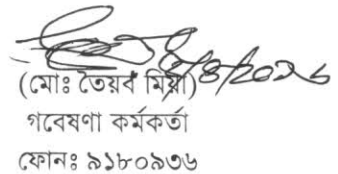 (মোঃ তৈয়ব মিয়া)
গবেষণা কর্মকর্তা
ফোনঃ ৯১৮০৯৩৬